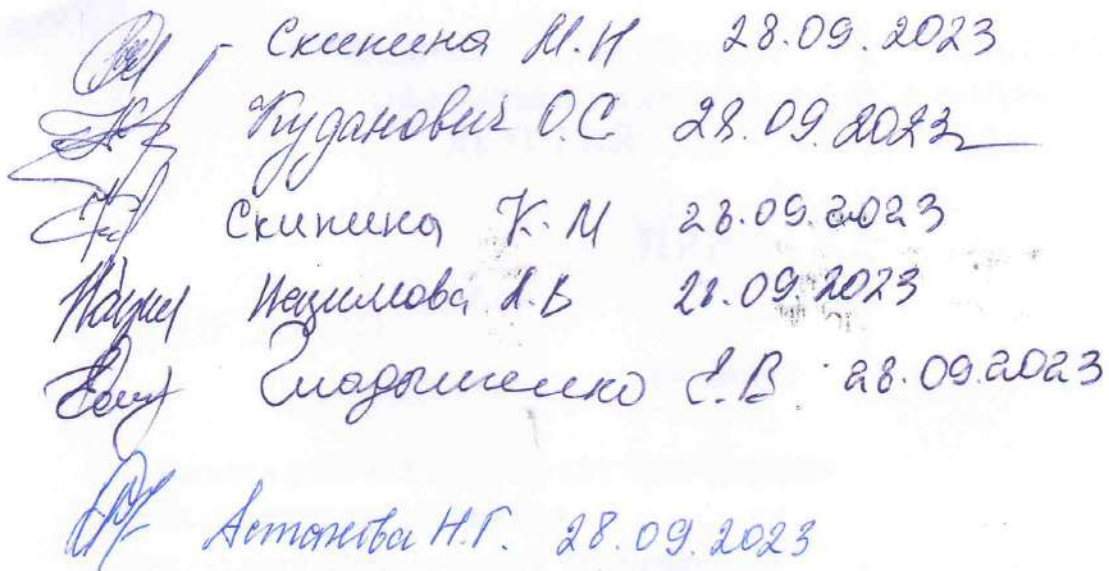 - Скипина М.Н 28.09.2023
Кударнович О.С 28.09.2023
Скипина К.М 28.09.2023
Назимова А.В 28.09.2023
Гладышенко Е.В. 28.09.2023
Астанова Н.Г. 28.09.2023